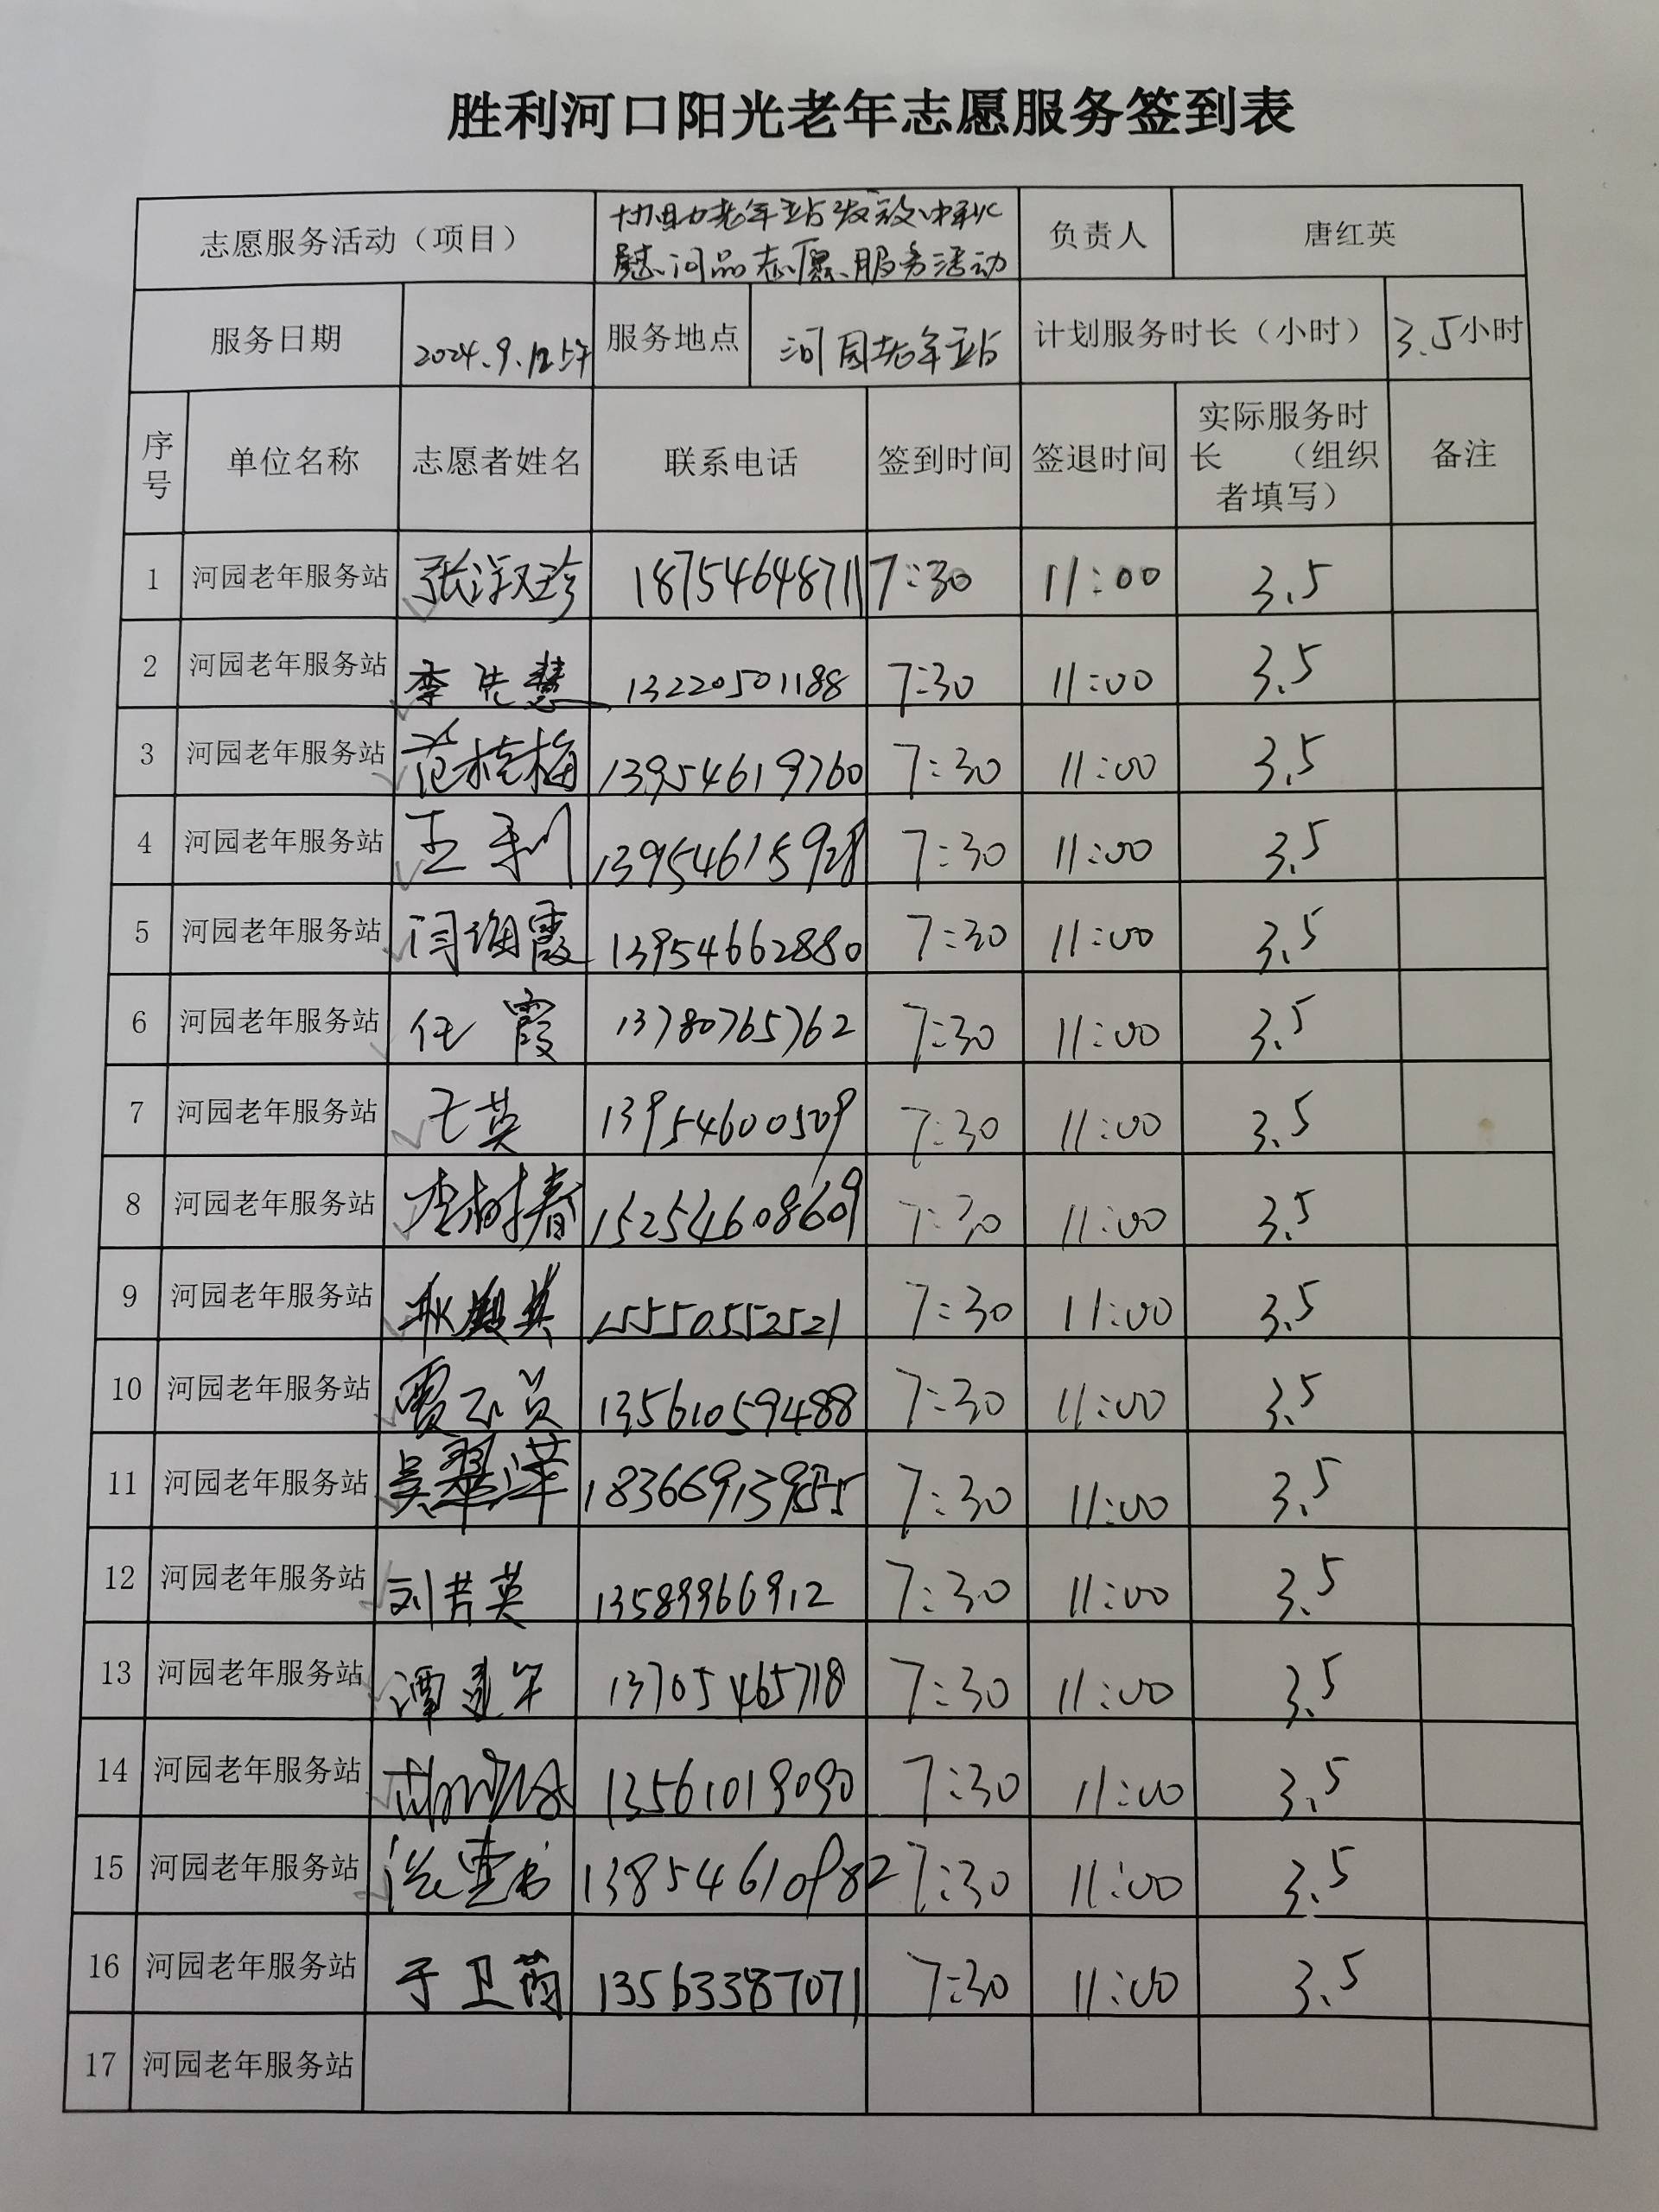 胜利河口阳光老年志愿服务签到表
志愿服务活动（项目） 协助老年站发放中秋 负责人 唐红英
慰问品志愿服务活动
服务日期 2024.9.12上午 服务地点 河园老年站 计划服务时长（小时） 3.5小时
序号 单位名称 志愿者姓名 联系电话 签到时间 签退时间 实际服务时长 （组织者填写） 备注
1 河园老年服务站 张淑珍 18754648711 7:30 11:00 3.5
2 河园老年服务站 李先慧 13220501188 7:30 11:00 3.5
3 河园老年服务站 范桂梅 13954619760 7:30 11:00 3.5
4 河园老年服务站 王利 13954615928 7:30 11:00 3.5
5 河园老年服务站 闫海霞 13954662880 7:30 11:00 3.5
6 河园老年服务站 任霞 13780765762 7:30 11:00 3.5
7 河园老年服务站 英 13954600509 7:30 11:00 3.5
8 河园老年服务站 李树春 15254608609 7:30 11:00 3.5
9 河园老年服务站 英 15550552521 7:30 11:00 3.5
10 河园老年服务站 贾 13561059488 7:30 11:00 3.5
11 河园老年服务站 吴翠萍 7:30 11:00 3.5
12 河园老年服务站 刘芳英 13589966912 7:30 11:00 3.5
13 河园老年服务站 谭建军 13705465718 7:30 11:00 3.5
14 河园老年服务站 13561019090 7:30 11:00 3.5
15 河园老年服务站 13854610982 7:30 11:00 3.5
16 河园老年服务站 于卫 13563387071 7:30 11:00 3.5
17 河园老年服务站